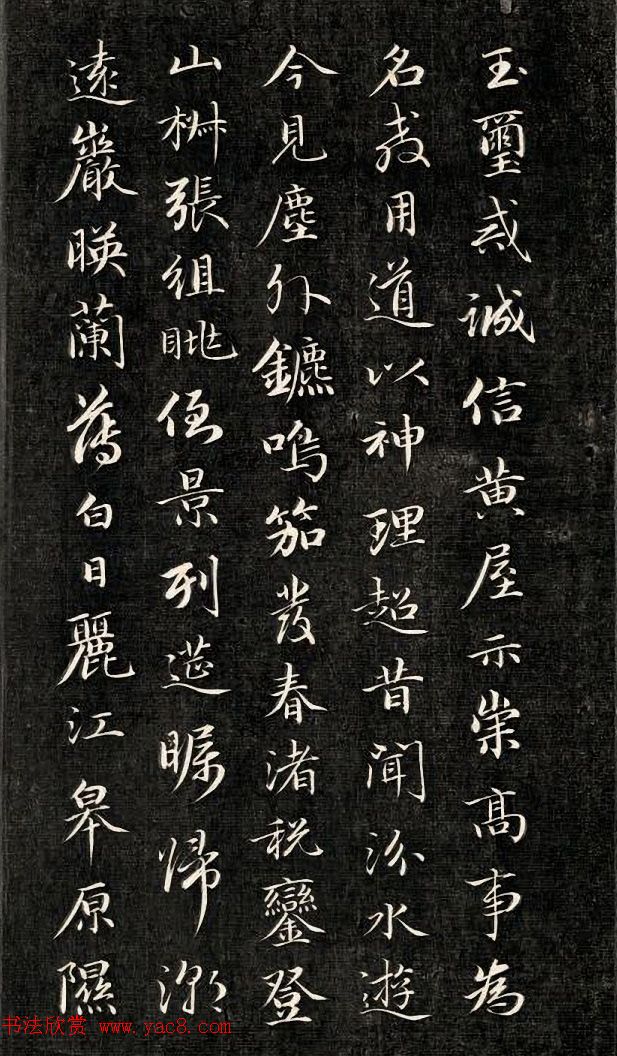 玉璽戒誠信黄屋示崇髙事為
名教用道以神理超昔聞汾水遊
今見塵外鑣鳴笳發春渚稅鑾登
山椒張組眺倒景列筵瞩歸潮
遠巖暎蘭薄白日麗江皋原隰
书法欣赏 www.yac8.com